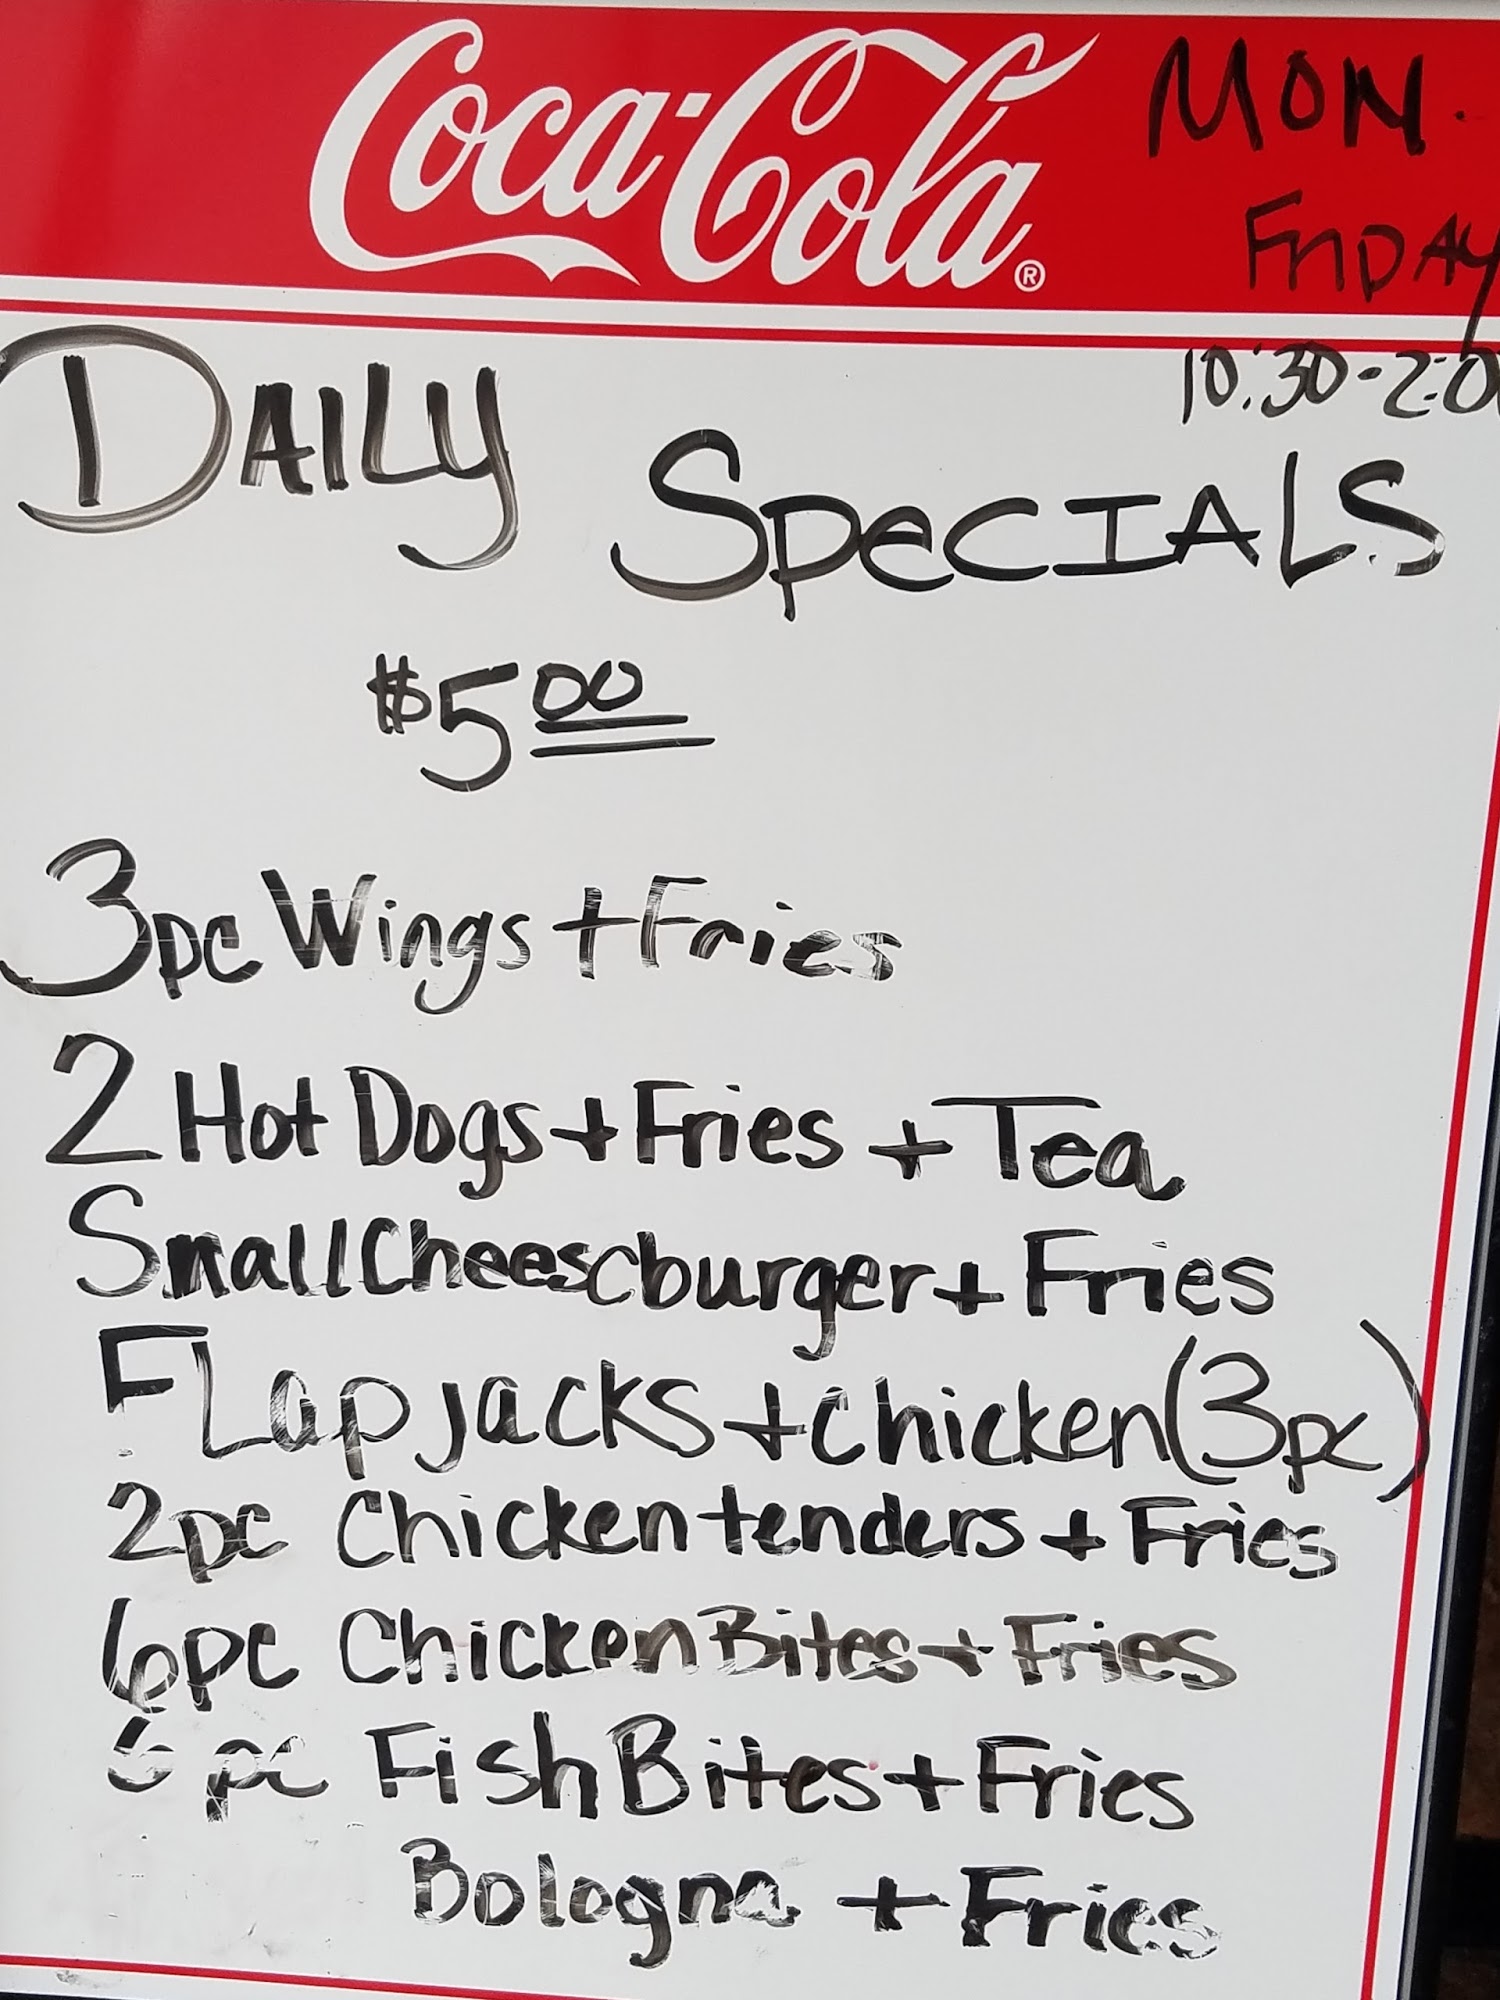 Coca-Cola®
MON.
FRIDAY
10:30-2:0
DAILY
SpeCIALS
$5.00
3pc Wings + Fries
2 Hot Dogs + Fries + Tea
Small Cheesebburger + Fries
FLapjacks + Chicken (3pc)
2pc Chicken tenders + Fries
6pc Chicken Bites + Fries
6 pc Fish Bites + Fries
Bologna + Fries